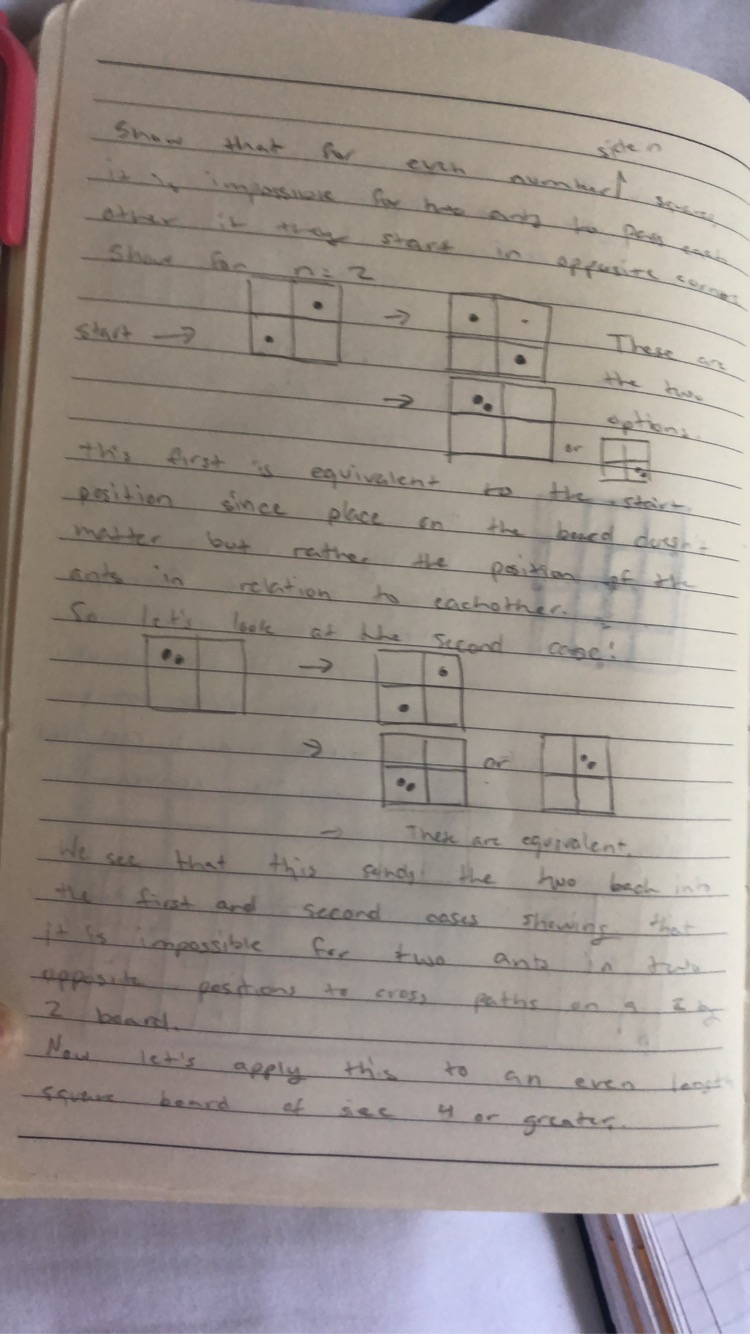 side n
Show that for even number square,
it is impossible for two ants to pass each
other if they start in opposite corners
Show for n = 2
start →
→
These are
the two
options.
→
or
this first is equivalent to the start
position since place on the board doesn't
matter but rather the position of the
ants in relation to eachother.
So let's look at the second case:
→
→
or
→ These are equivalent.
We see that this sends the two back into
the first and second cases showing that
it is impossible for two ants in two
opposite positions to cross paths on a 2 by
2 board.
Now let's apply this to an even length
square board of 4 or greater.